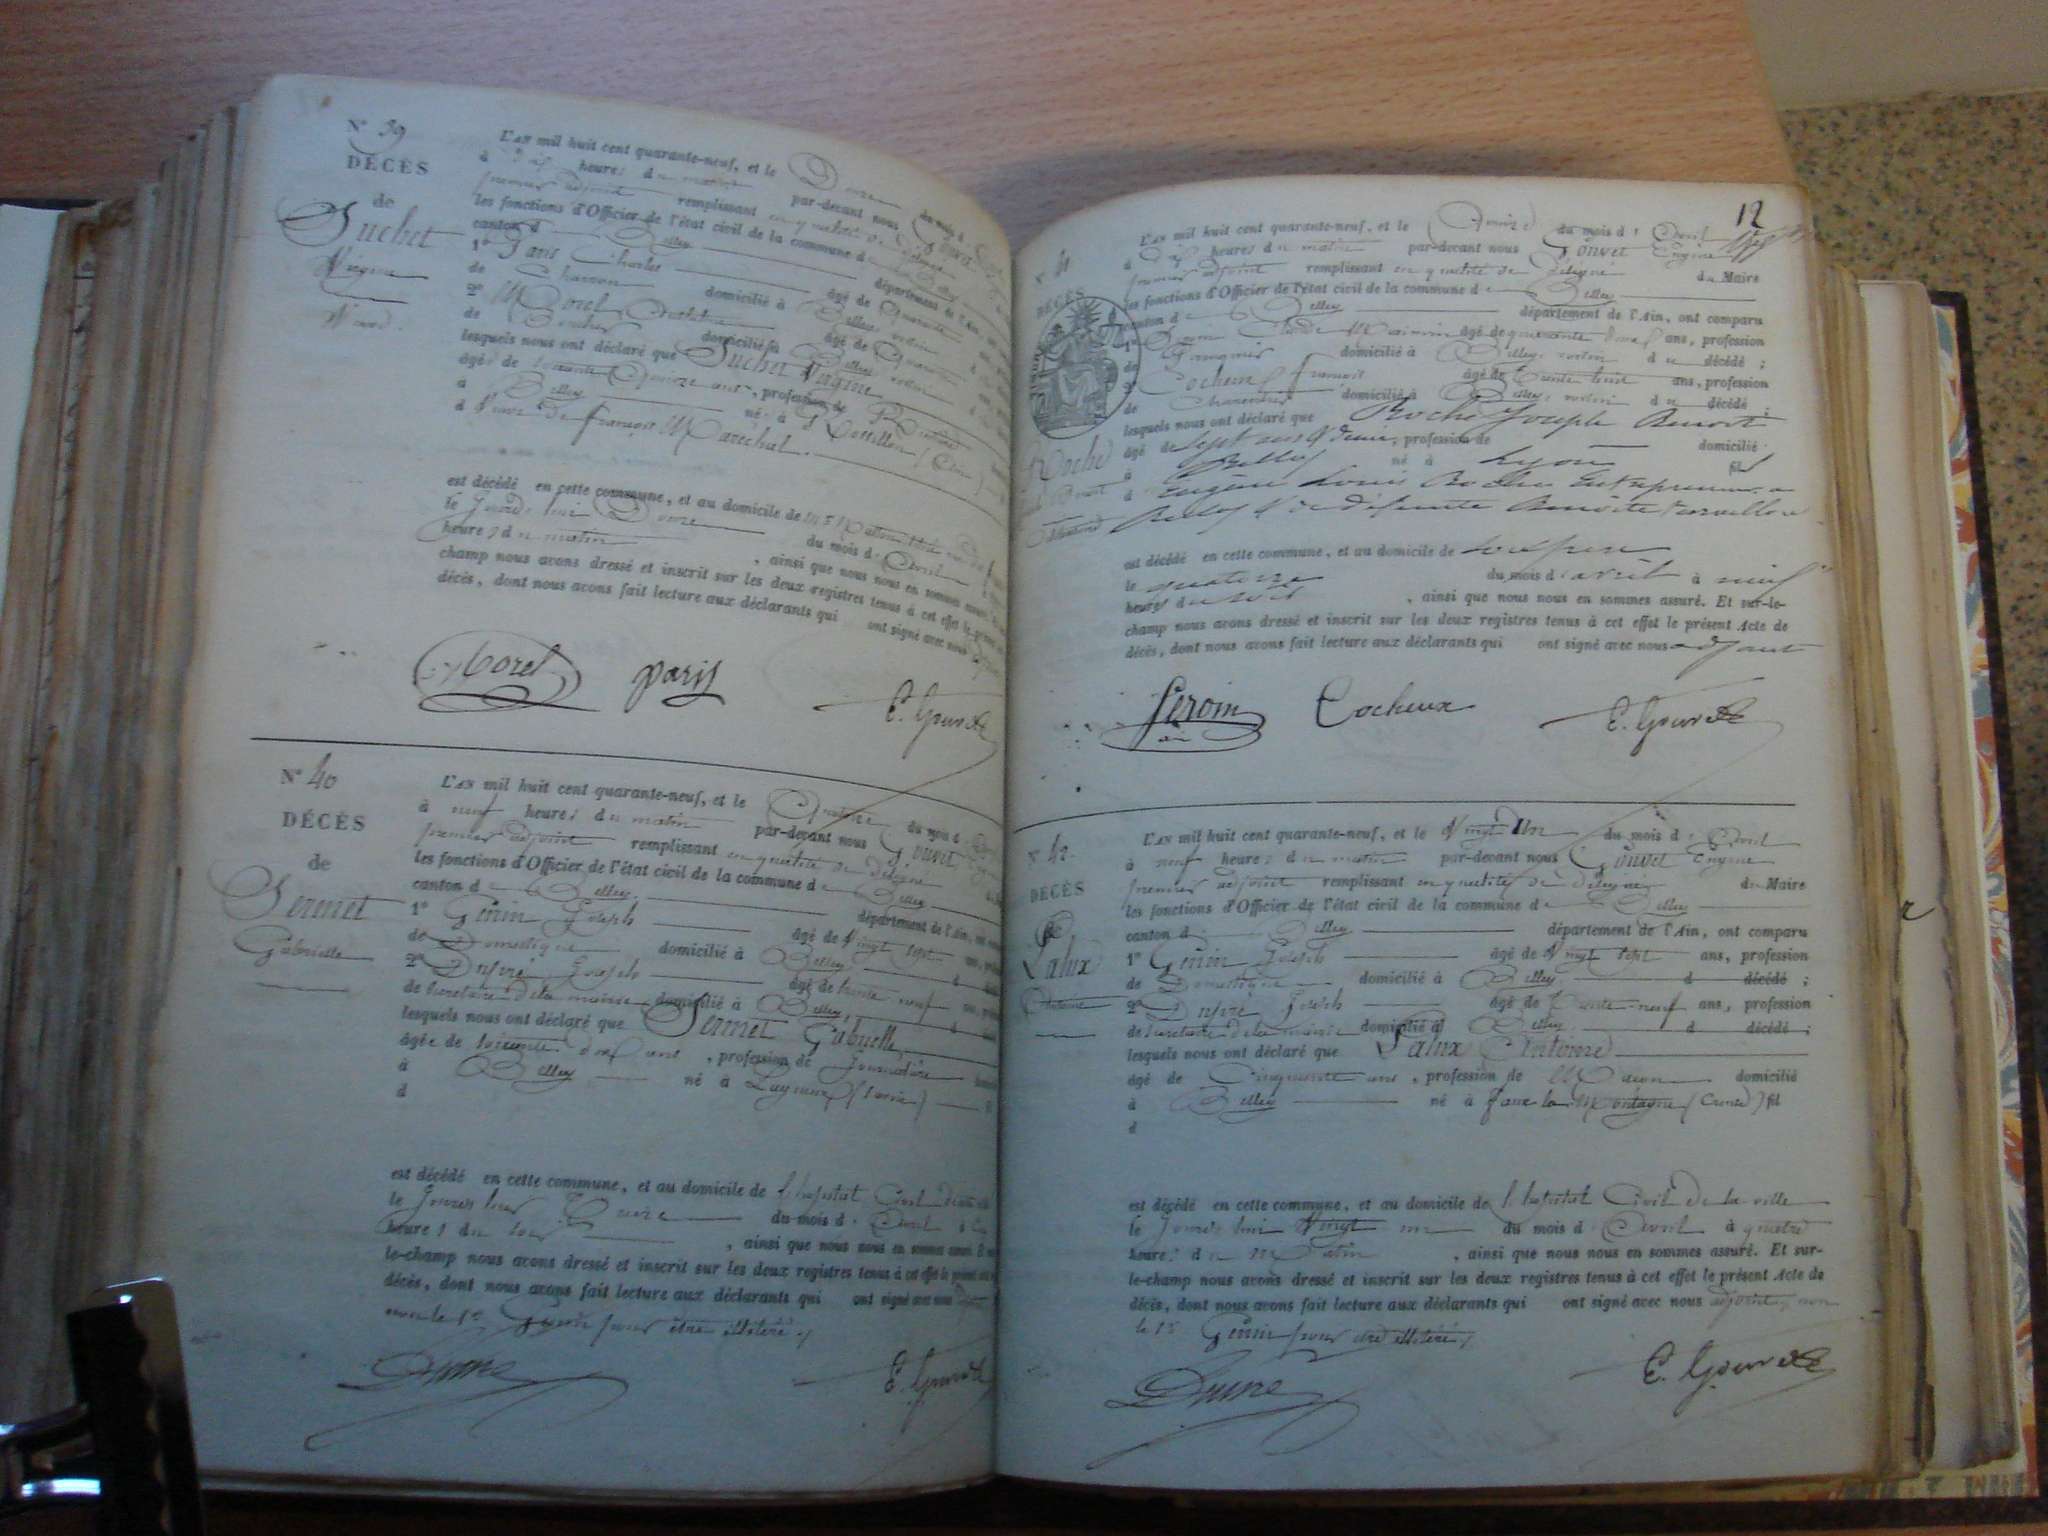 N° 39
DÉCÈS
de
Suchet
Virgine
Veuve.
L'AN mil huit cent quarante-neuf, et le Douze du mois d
à dix heures du matin par-devant nous Gouvet
premier adjoint remplissant en qualité de délégué
les fonctions d'Officier de l'état civil de la commune d
canton d Belley département de l'Ain,
1° Paris Charles âgé de Quarante
de Charron domicilié à Belley, voisin
2° Morel âgé de Quarante
de domicilié à Belley voisin
lesquels nous ont déclaré que Suchet Virgine
âgée de soixante Quinze ans, profession de
à Belley né à
d Veuve de françois Maréchal.
est décédé en cette commune, et au domicile de
le Jourd'hui Douze du mois d'Avril
heures du matin , ainsi que nous nous en sommes assuré.
champ nous avons dressé et inscrit sur les deux registres tenus à cet effet le présent
décès, dont nous avons fait lecture aux déclarants qui ont signé avec nous
Morel paris E. Gouvet
N° 40
DÉCÈS
de
Sermet
Gabrielle
L'AN mil huit cent quarante-neuf, et le Quatorze du mois d
à neuf heures du matin par-devant nous Gouvet
premier adjoint remplissant en qualité de délégué
les fonctions d'Officier de l'état civil de la commune de Belley
canton de Belley département de l'Ain,
1° Génin Joseph âgé de Vingt sept ans,
de Domestique domicilié à Belley
2° Dupré Joseph âgé de trente neuf ans,
de Secretaire de la mairie domicilié à Belley,
lesquels nous ont déclaré que Sermet Gabrielle
âgée de soixante dix ans , profession de Journalière
à Belley né à
d
est décédé en cette commune, et au domicile de l'hopital Civil
le Jourd'hier Treize du mois d'Avril à
heures du soir , ainsi que nous nous en sommes assuré.
le-champ nous avons dressé et inscrit sur les deux registres tenus à cet effet le présent
décès, dont nous avons fait lecture aux déclarants qui ont signé avec nous
non le 1er Génin pour être illiteré
Dupré E. Gouvet
12
N° 41
DÉCÈS
Roche
L'AN mil huit cent quarante-neuf, et le Quinze du mois d'Avril
à Dix heures du matin par-devant nous Gouvet Eugène
premier adjoint remplissant en qualité de Délégué du Maire
les fonctions d'Officier de l'état civil de la commune de Belley
canton de Belley département de l'Ain, ont comparu
1° Claude âgé de quarante ans, profession
de domicilié à Belley, voisin du décédé ;
2° Cocheux françois âgé de trente huit ans, profession
de Charcutier domicilié à Belley, voisin du décédé ;
lesquels nous ont déclaré que Roche Joseph Benoit
âgé de Sept ans & demi, profession de domicilié
à Belley né à Lyon fils
d'Eugène Louis Roche Entrepreneur a
Belley & de défunte Benoite
est décédé en cette commune, et au domicile de son père
le quatorze du mois d'avril à neuf
heures du soir , ainsi que nous nous en sommes assuré. Et sur-le-
champ nous avons dressé et inscrit sur les deux registres tenus à cet effet le présent Acte de
décès, dont nous avons fait lecture aux déclarants qui ont signé avec nous adjoint
Cocheux E. Gouvet
N° 42.
DÉCÈS
de
Lalux
Antoine
L'AN mil huit cent quarante-neuf, et le Vingt Un du mois d'Avril
à neuf heures du matin par-devant nous Gouvet Eugène
premier adjoint remplissant en qualité de délégué du Maire
les fonctions d'Officier de l'état civil de la commune de Belley
canton de Belley département de l'Ain, ont comparu
1° Génin Joseph âgé de Vingt Sept ans, profession
de Domestique domicilié à Belley d décédé ;
2° Dupré Joseph âgé de trente-neuf ans, profession
de Secretaire de la mairie domicilié à Belley d décédé ;
lesquels nous ont déclaré que Lalux Antoine
âgé de Cinquante ans , profession de Maçon domicilié
à Belley né à faux la Montagne (Creuse) fil
d
est décédé en cette commune, et au domicile de l'hopital Civil de la ville
le Jourd'hui Vingt un du mois d'Avril à quatre
heures du Matin , ainsi que nous nous en sommes assuré. Et sur-
le-champ nous avons dressé et inscrit sur les deux registres tenus à cet effet le présent Acte de
décès, dont nous avons fait lecture aux déclarants qui ont signé avec nous adjoint, non
le 1er Génin pour être illiteré
Dupré E. Gouvet